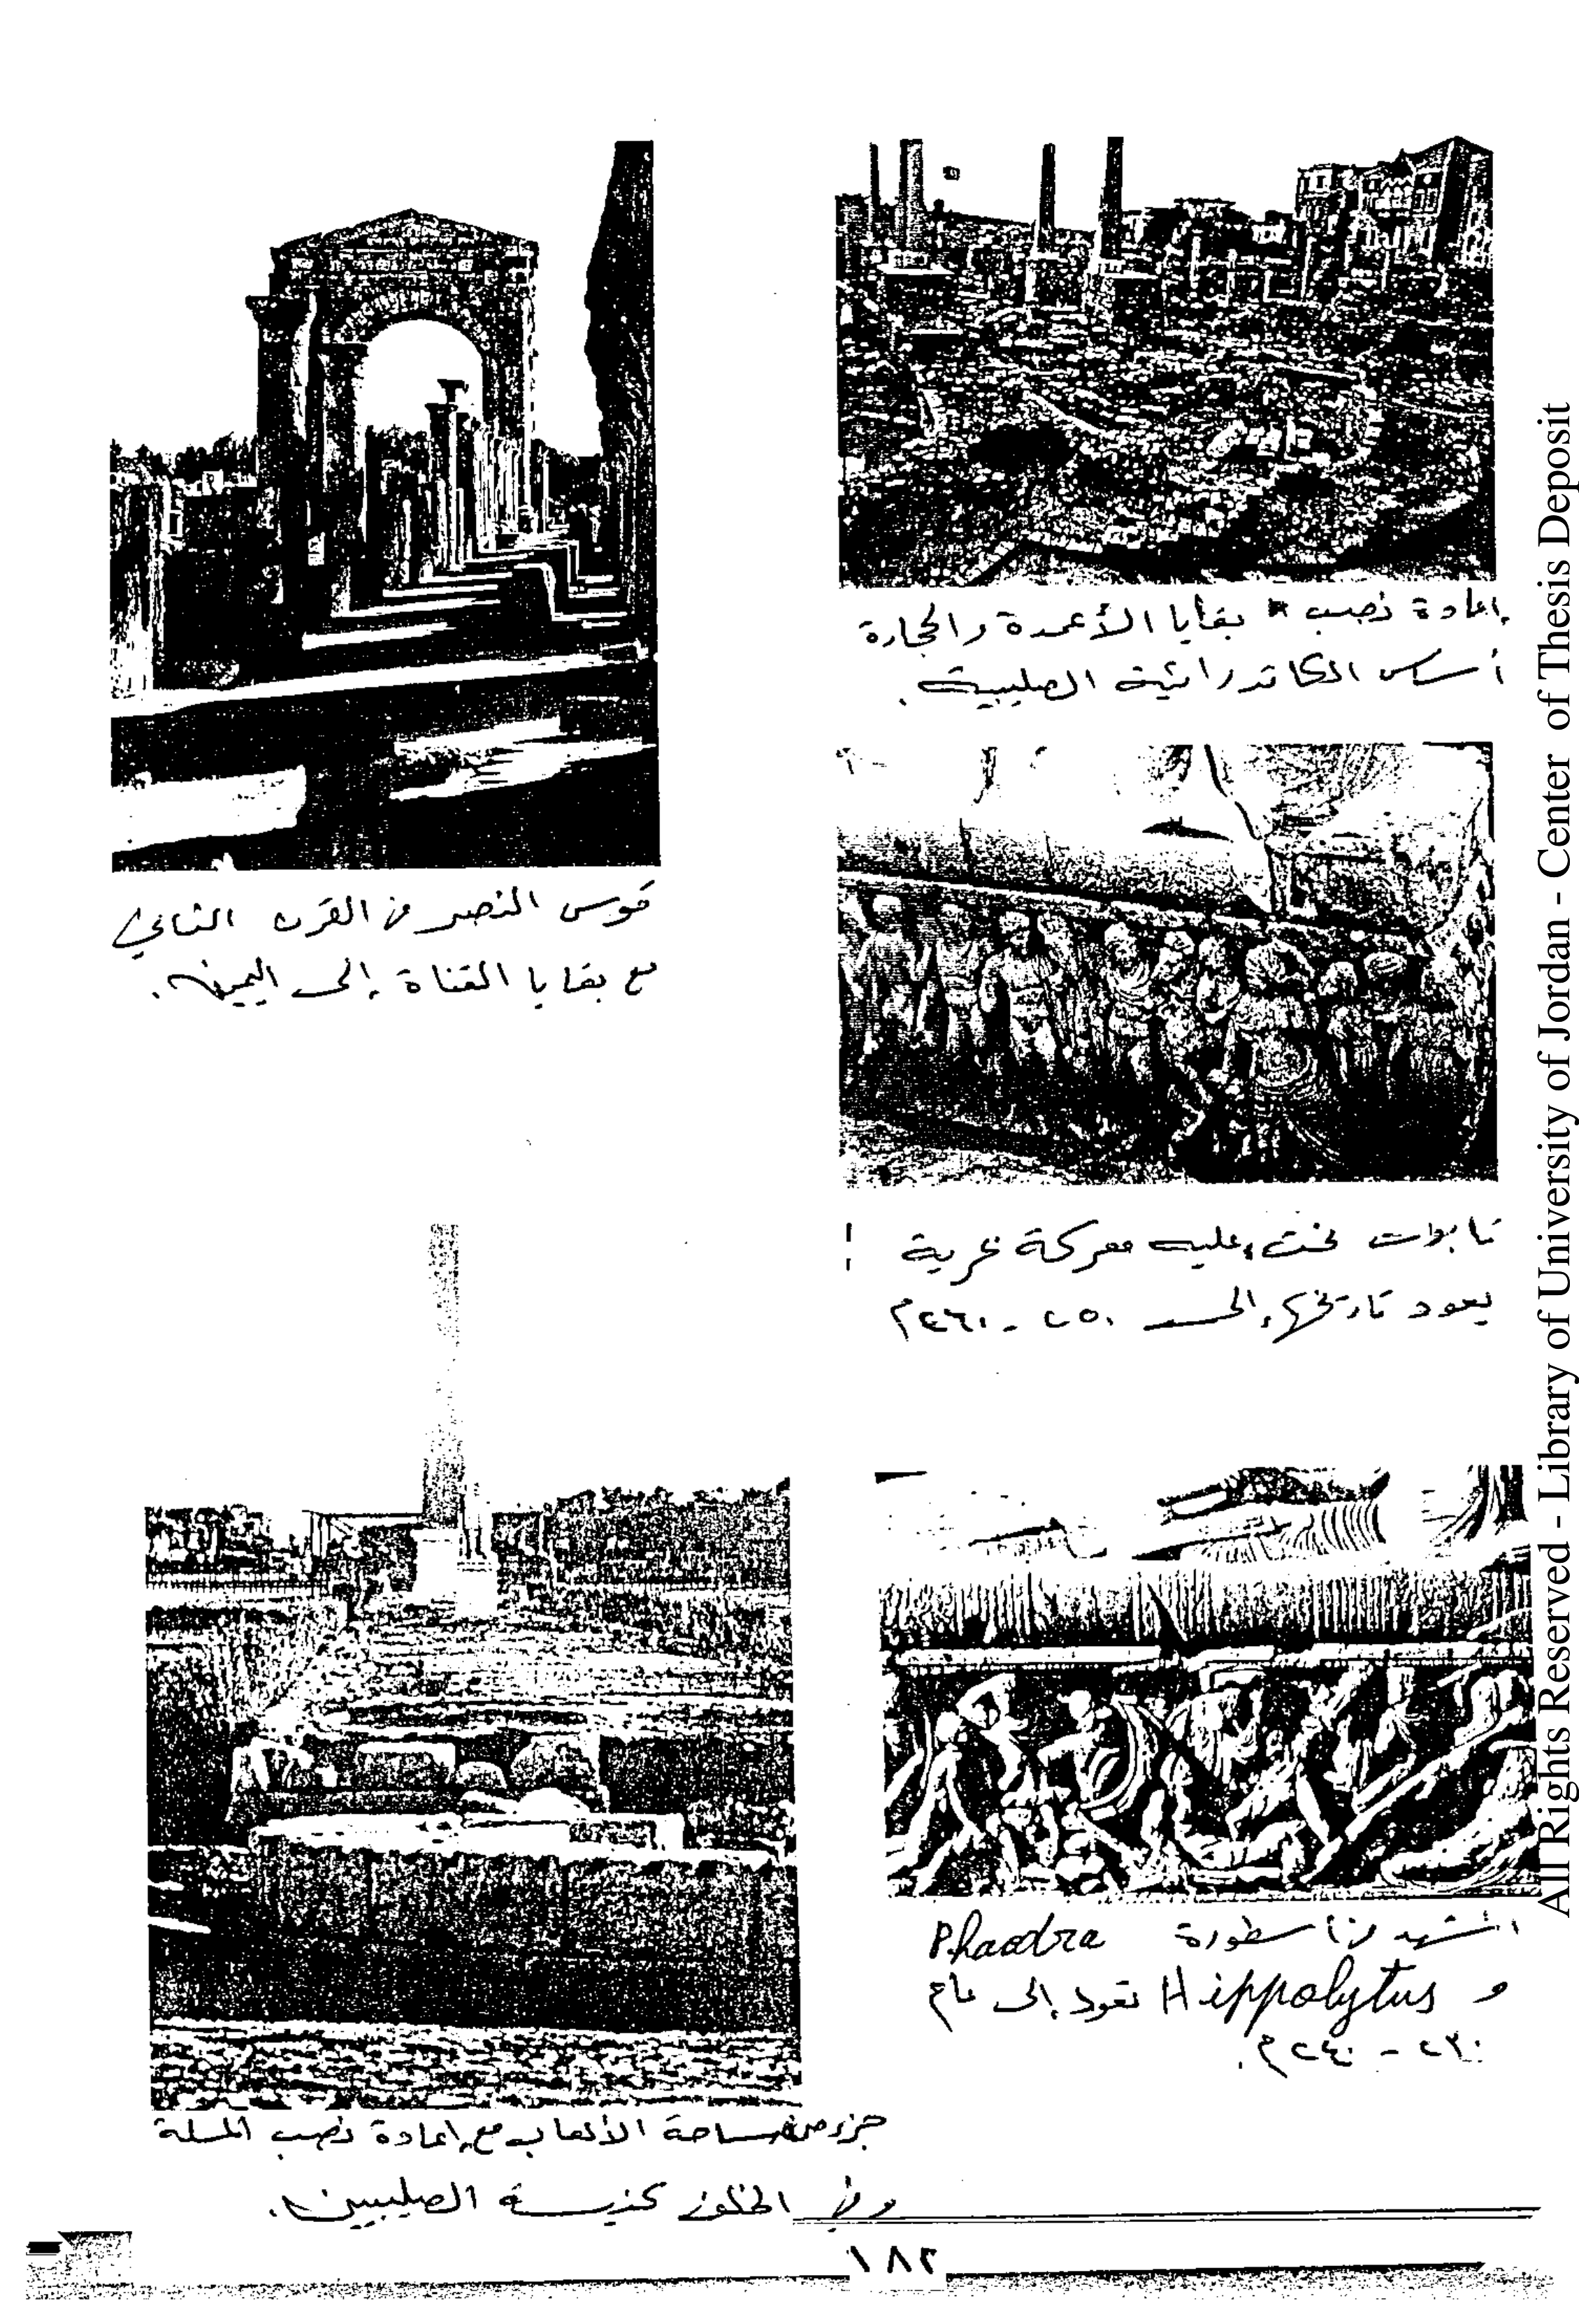 إعادة نصب بقايا الأعمدة والحجارة
أساس الكاتدرائية الصليبية.
قوس النصر من القرن الثاني
مع بقايا القناة إلى اليمين.
تابوت نحت عليه معركة بحرية
يعود تاريخها إلى ٢٥٠ - ٢٦٠م
المشهد من أسطورة Phaedra
و Hippolytus تعود إلى عام
٢٣٠ - ٢٤٠م.
جزء من ساحة الألعاب مع إعادة نصب المسلة
وفي الخلف كنيسة الصليبيين.
١٨٢
All Rights Reserved - Library of University of Jordan - Center of Thesis Deposit